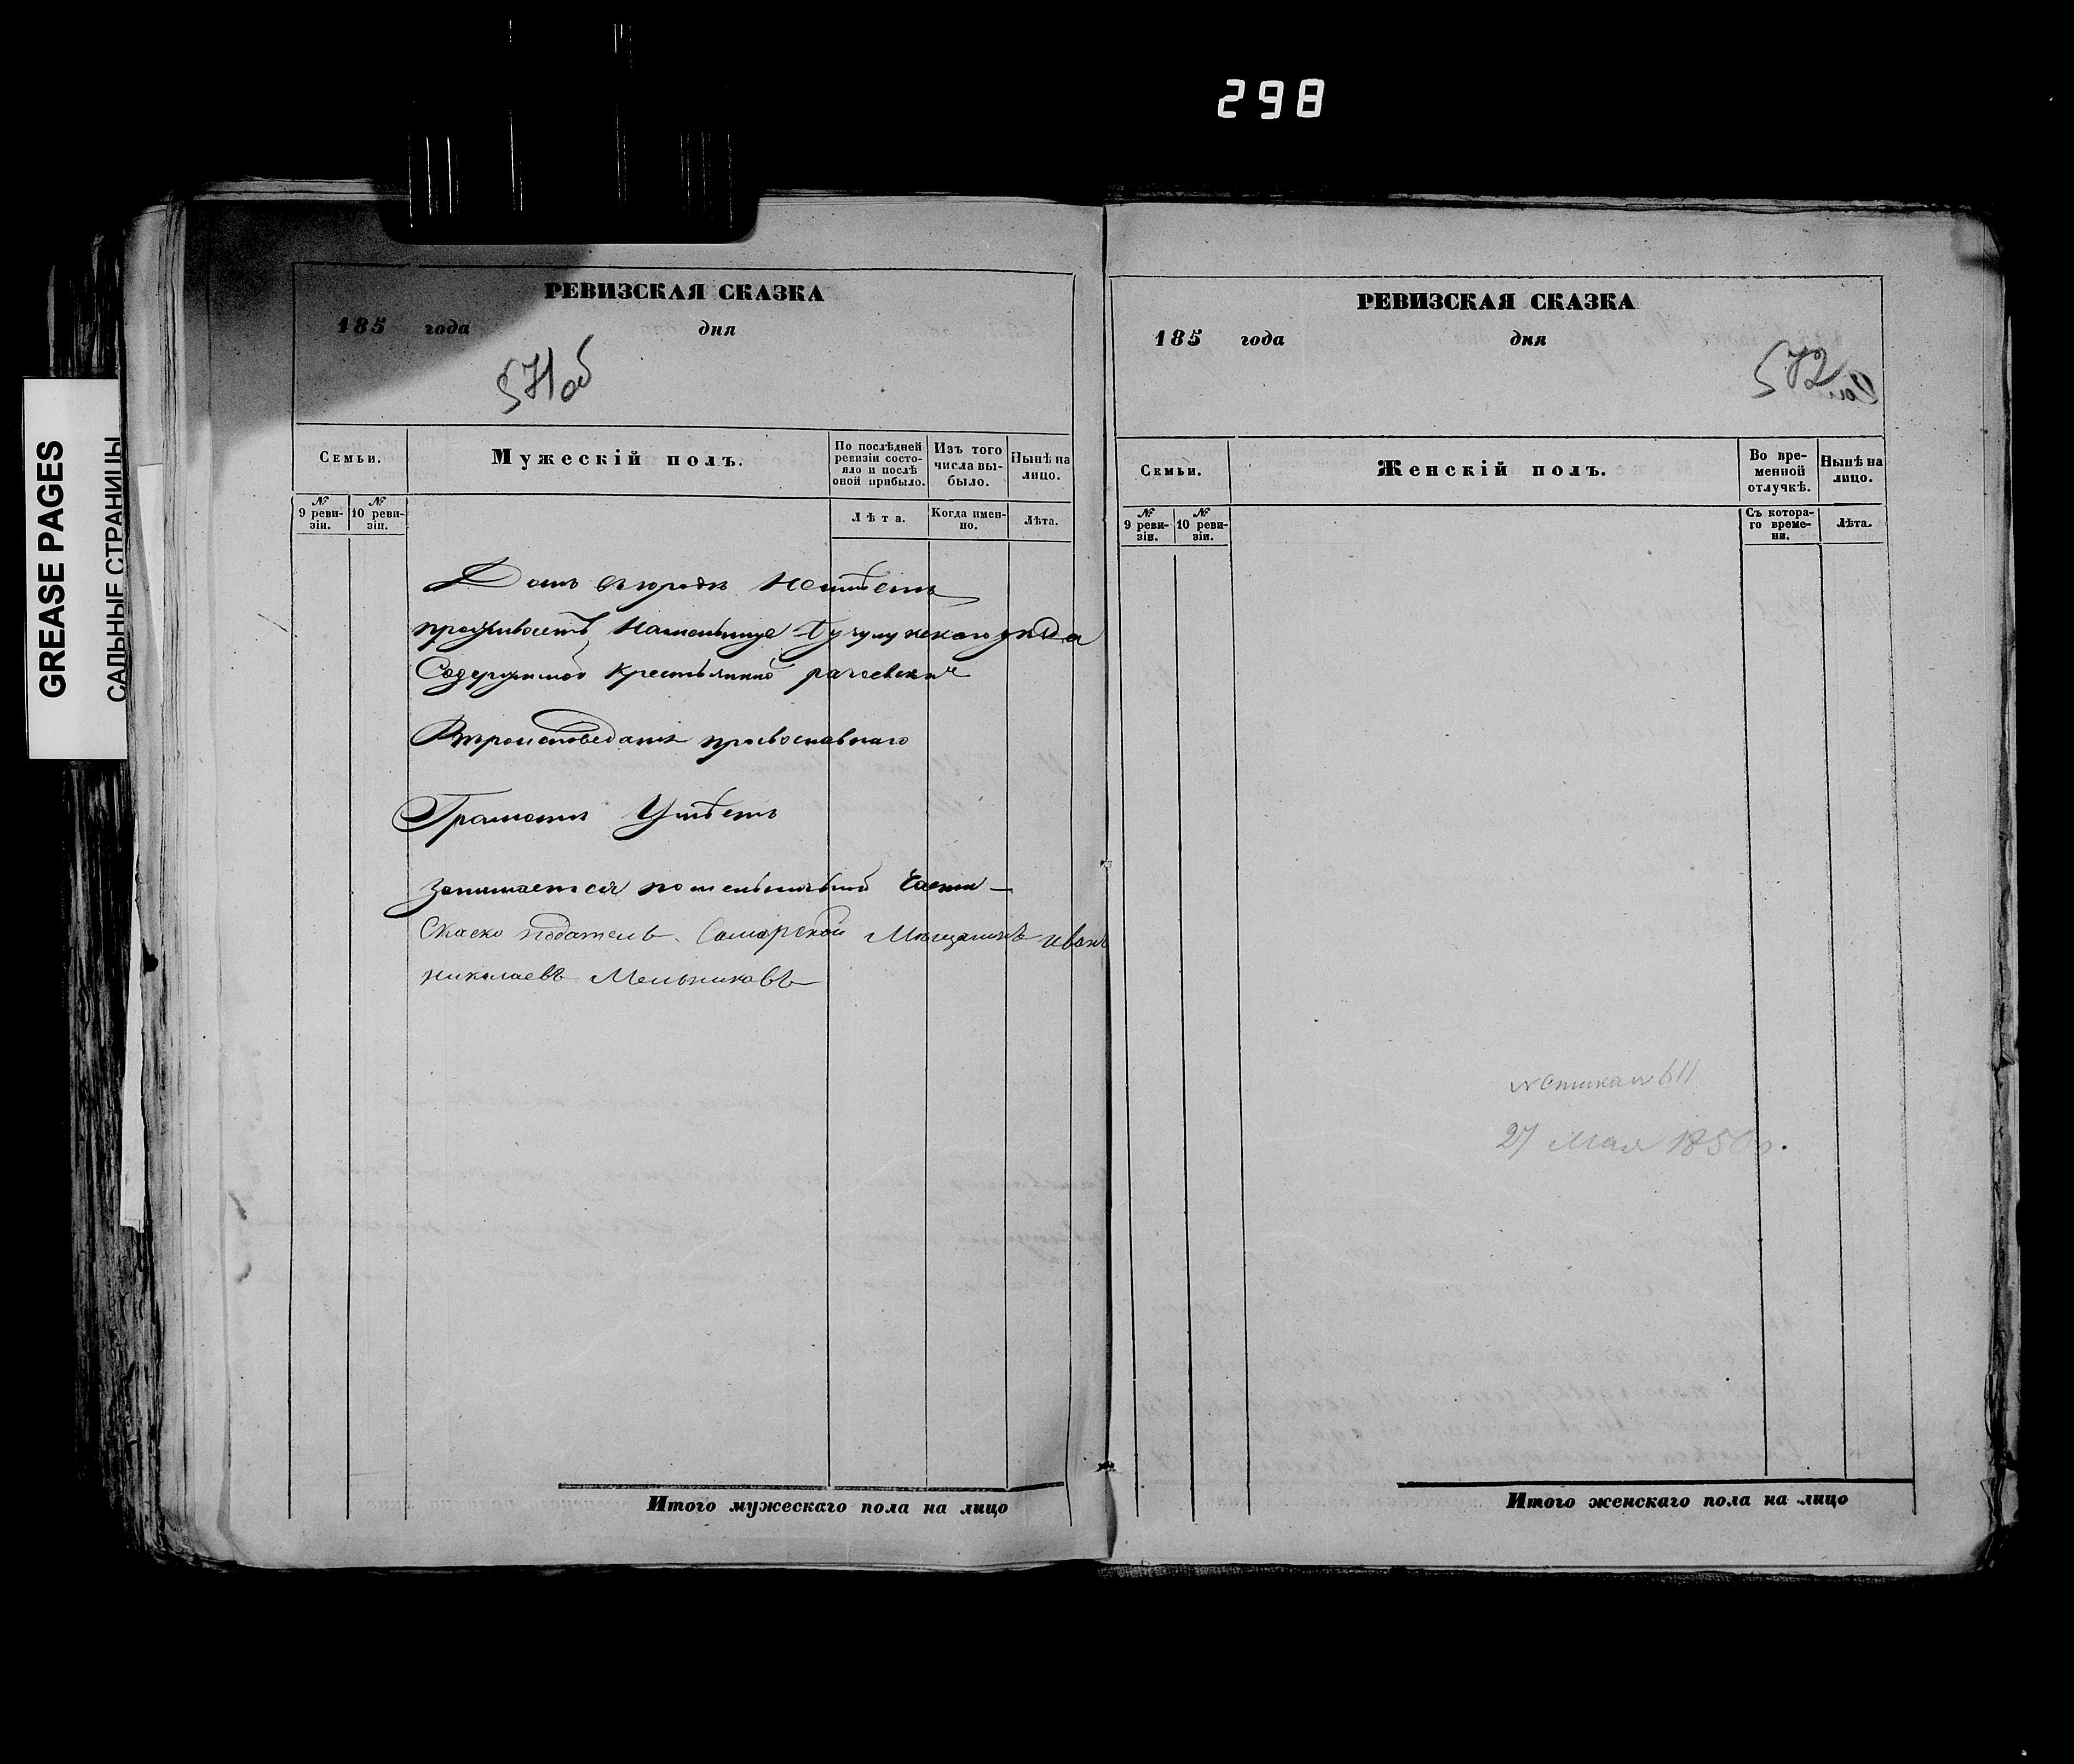 298
GREASE PAGES
САЛЬНЫЕ СТРАНИЦЫ
РЕВИЗСКАЯ СКАЗКА
185 года дня
571об
Семьи.
Мужескій полъ.
По послѣдней ревизіи состояло и послѣ оной прибыло.
Изъ того числа выбыло.
Нынѣ на лицо.
№ 9 ревизіи.
№ 10 ревизіи.
Лѣта.
Когда именно.
Лѣта.
Домъ въ городѣ Неимѣетъ
проживаетъ Намельнице Бузулукского уѣзда
Содержимой Крестьянино
Вѣроисповеданія православнаго
Грамотѣ Умѣетъ
Занимается помельничьной части
Скаско подателъ Самарской Мѣщанинъ иванъ
николаевъ Мельниковъ
Итого мужескаго пола на лицо
РЕВИЗСКАЯ СКАЗКА
185 года дня
572
Семьи.
Женскій полъ.
Во временной отлучкѣ.
Нынѣ на лицо.
№ 9 ревизіи.
№ 10 ревизіи.
Съ котораго времени.
Лѣта.
27 Мая 1850
Итого женскаго пола на лицо